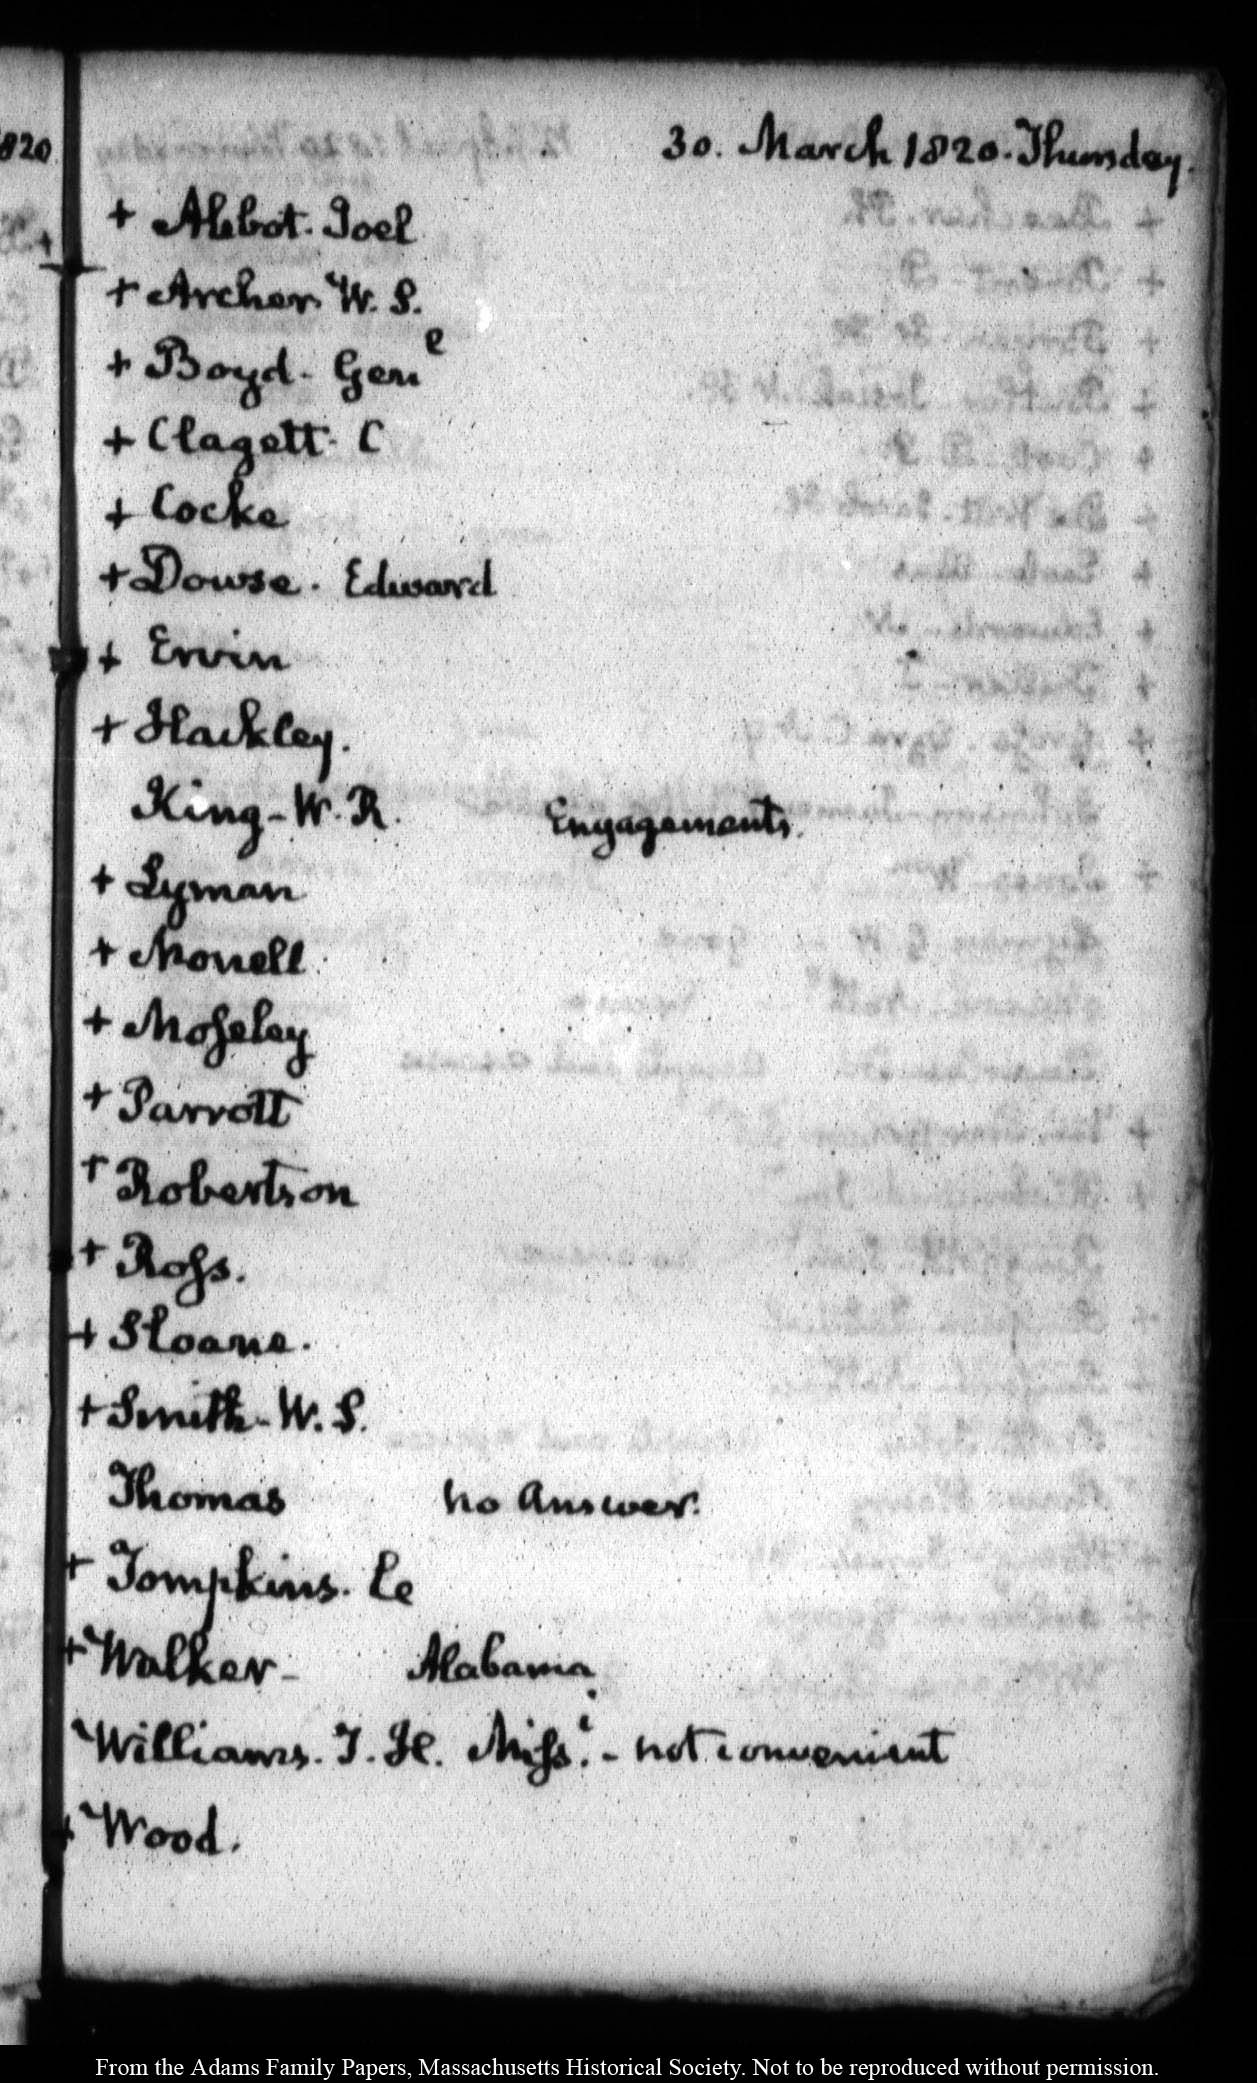 820
30. March 1820. Thursday.
+ Abbot. Joel
+ Archer. W. S.
+ Boyd. Gen^e
+ Clagett. C
+ Cocke
+ Dowse. Edward
+ Ervin
+ Hackley.
King - W. R. Engagements.
+ Lyman
+ Monell
+ Moseley
+ Parrott
+ Robertson
+ Ross.
+ Sloane.
+ Smith - W. S.
Thomas no Answer.
+ Tompkins. C
+ Walker - Alabama
Williams. T. H. Miss^i. - not convenient
+ Wood.
From the Adams Family Papers, Massachusetts Historical Society. Not to be reproduced without permission.